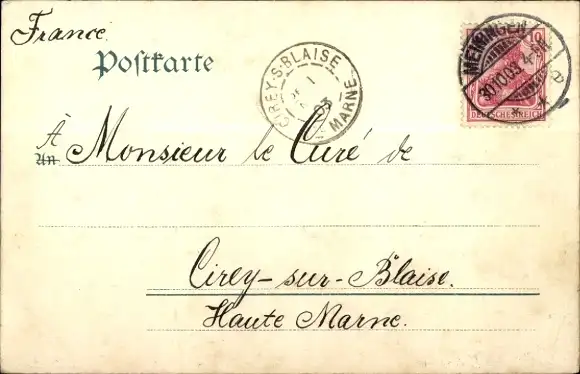 France.
Postkarte
CIREY-S-BLAISE
MARNE
03
MEININGEN
30.10.03
10
DEUTSCHES REICH
À
Monsieur le Curé de
Cirey-sur-Blaise.
Haute Marne.